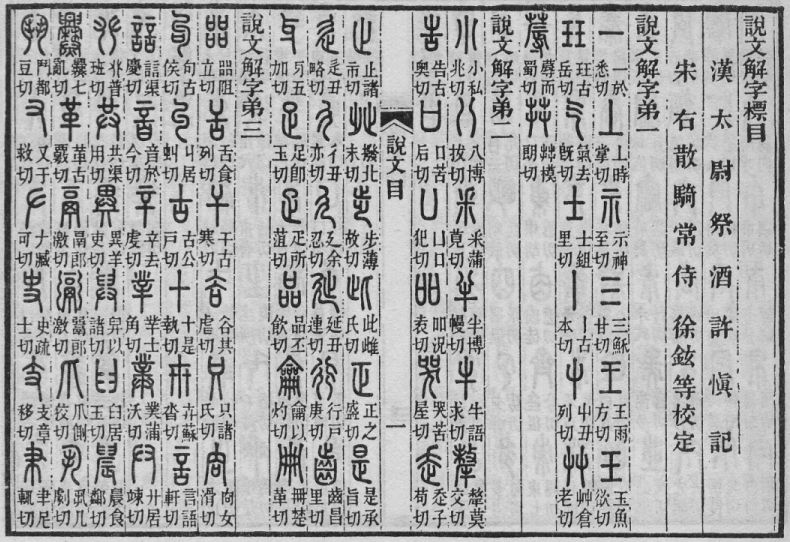 說文解字標目
漢太尉祭酒許慎記
宋右散騎常侍徐鉉等校定
說文解字弟一
一 一於悉切 上 上時掌切 示 示神至切 三 三穌甘切 王 王雨方切 玉 玉魚欲切
玨 玨古岳切 气 氣去旣切 士 士組里切 丨 丨古本切 屮 屮丑列切 艸 艸倉老切
蓐 蓐而蜀切 茻 茻模朗切
說文解字弟二
小 小私兆切 八 八博拔切 釆 釆蒲莧切 半 半博幔切 牛 牛語求切 犛 犛莫交切
告 告古奧切 口 口苦后切 凵 凵口犯切 吅 吅況袁切 哭 哭苦屋切 走 走子苟切
說文目 一
止 止諸市切 癶 癶北末切 步 步薄故切 此 此雌氏切 正 正之盛切 是 是承旨切
辵 辵丑略切 彳 彳丑亦切 廴 廴余忍切 㢟 㢟丑連切 行 行戶庚切 齒 齒昌里切
牙 牙五加切 足 足即玉切 疋 疋所菹切 品 品丕飲切 龠 龠以灼切 冊 冊楚革切
說文解字弟三
㗊 㗊阻立切 舌 舌食列切 干 干古寒切 谷 谷其虐切 只 只諸氏切 㕯 㕯女滑切
句 句古侯切 丩 丩居虯切 古 古公戶切 十 十是執切 卅 卅蘇沓切 言 言語軒切
誩 誩渠慶切 音 音於今切 䇂 䇂去虔切 丵 丵士角切 菐 菐蒲沃切 廾 廾居竦切
𠬜 𠬜普班切 共 共渠用切 異 異羊吏切 舁 舁以諸切 臼 臼居玉切 晨 晨食鄰切
爨 爨七亂切 革 革古覈切 鬲 鬲郎激切 䰜 䰜郎激切 爪 爪側狡切 丮 丮几劇切
鬥 鬥都豆切 又 又于救切 𠂇 𠂇臧可切 史 史疏士切 支 支章移切 𦘒 𦘒尼輒切